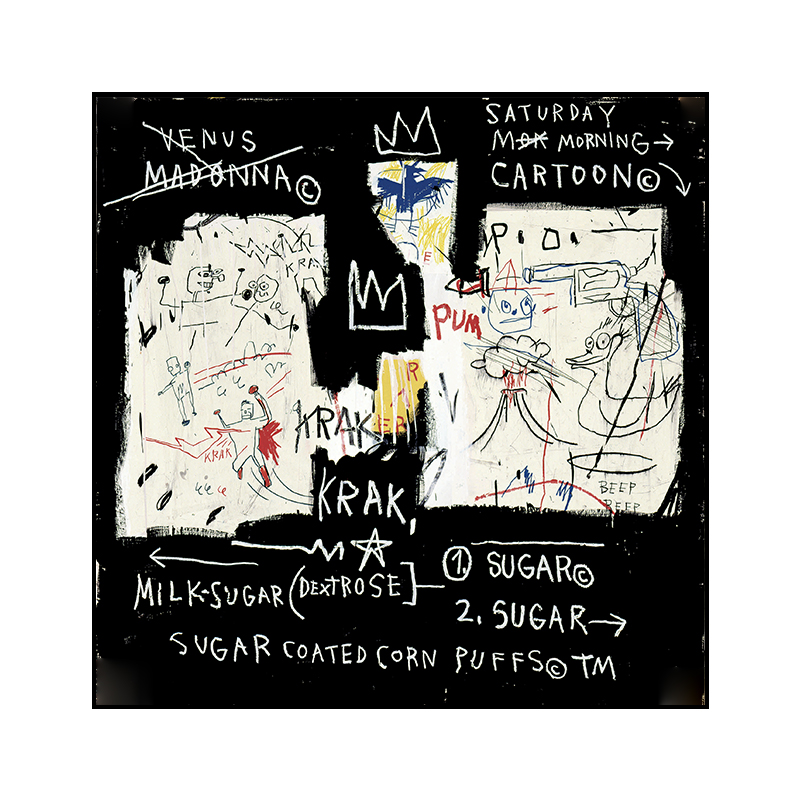 VENUS
MADONNA ©
SATURDAY
MOR MORNING →
CARTOON ©
KRAK
E
P.O.
PUM
R
KRAK
KRAK
KRAK,
BEEP
BEEP
MILK-SUGAR (DEXTROSE]
1. SUGAR ©
2. SUGAR →
SUGAR COATED CORN PUFFS © TM